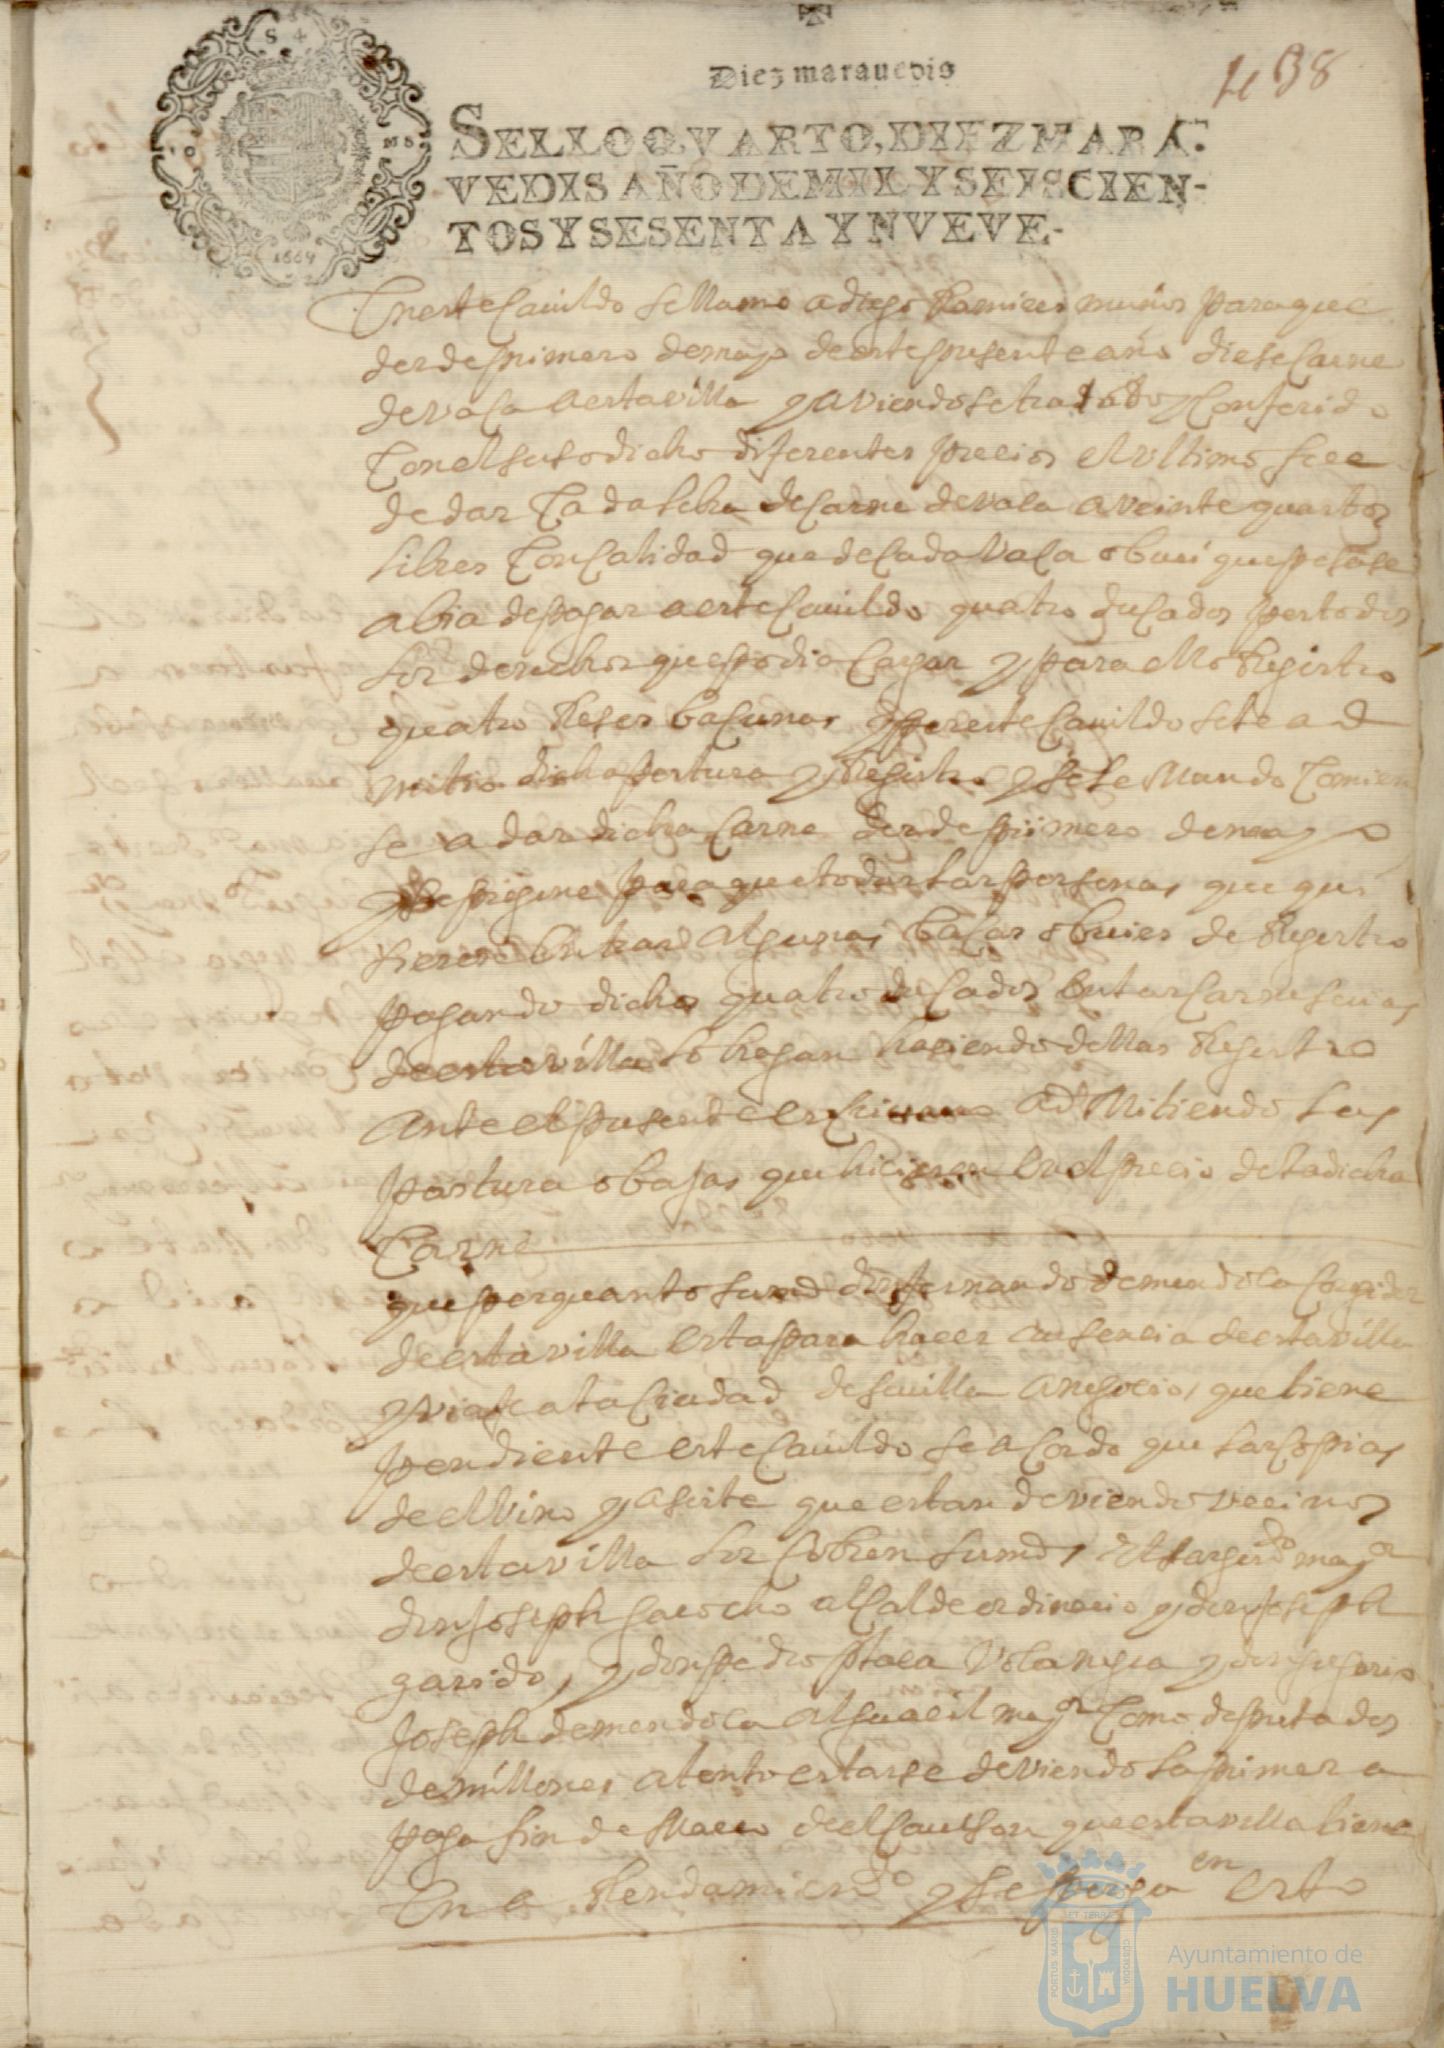 S 4
1669
Diez marauedis
438
SELLO QVARTO, DIEZ MARA-
VEDIS AÑO DE MIL Y SEISCIEN-
TOS Y SESENTA Y NVEVE.
En este Cauildo se llamo a diego Ramires muños para que
desde primero de mayo de este presente año diese Carne
de vaca a esta villa y aviendose tratado y Conferido
Con el susodicho diferentes precios el vltimo fue
de dar Cada libra de Carne de vaca a veinte quartos
libres Con Calidad que de Cada vaca o buei que pesase
abia de pagar a este Cauildo quatro ducados por todos
los derechos que podia Cargar y para ello Registro
quatro Reses bacunas y por este Cauildo se le ad
mitio dicha postura y Registro y se le Mando Comien
se a dar dicha Carne desde primero de mayo
y se pregone para que todas las personas que qui
sieren Entrar algunas bacas o buies de Registro
pagando dichos quatro ducados En las Carneserias
de esta villa lo hagan haciendo dellas Registro
ante el presente escriuano admitiendo las
postura o bajas que hicieren En el precio de la dicha
Carne
que por quanto su md don fernando de mendoca Coregidor
de esta villa esta para hacer ausencia de esta villa
y viaje a la Ciudad de seuilla a negocios que tiene
pendiente este Cauildo se acordo que las Copias
de el vino y aseite que estan deviendo vecinos
de esta villa los Cobren su md, El sargto mayor
don Joseph alcalde ordinario y don Joseph
garido, y don pedro y don gregorio
Joseph de mendoca alguacil mayor Como deputados
de millones atento estarse deviendo la primera
paga fin de Marco de el que esta villa tiene
En a Rendamiento y se en esto
PORTUS MARIS
ET TERRAE
CUSTODIA
Ayuntamiento de
HUELVA